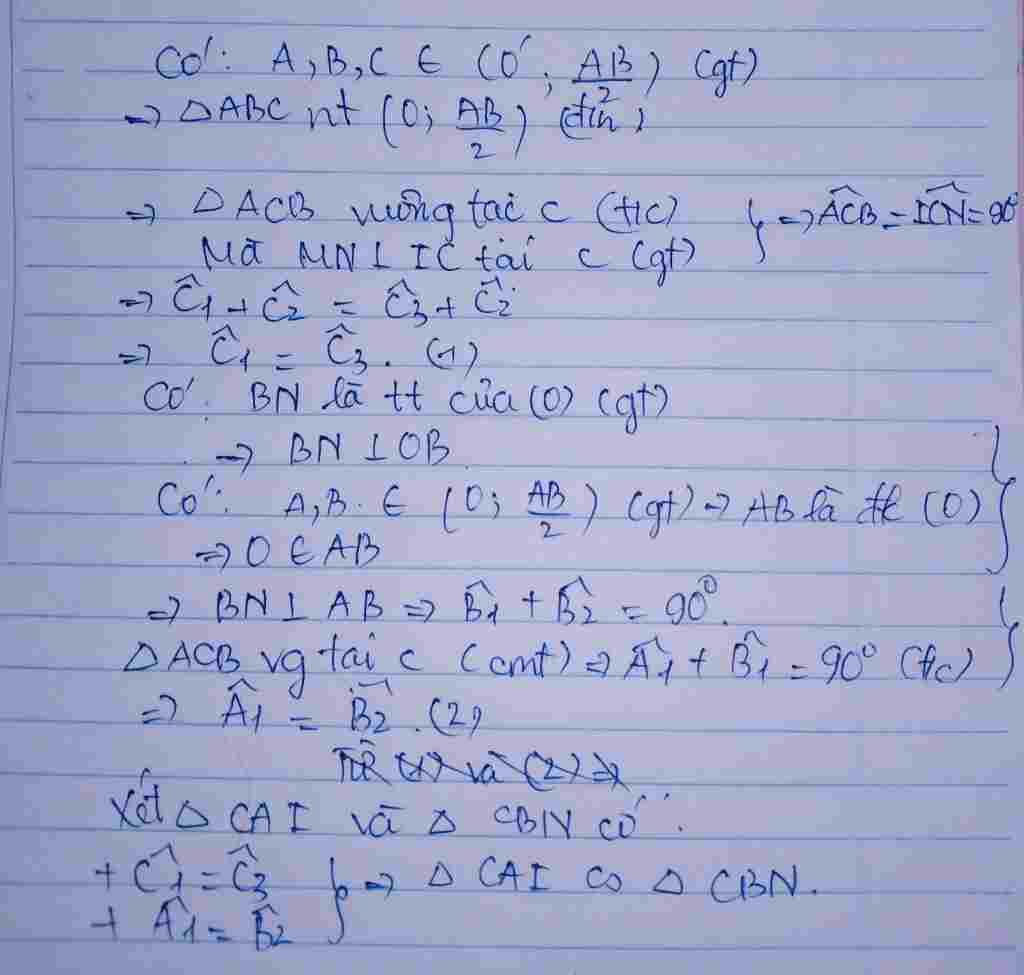 Có: A, B, C ∈ (O; AB/2) (gt)
=> △ABC nt (O; AB/2) (đ/n)
=> △ACB vuông tại C (t/c) } => ACB = ICN = 90°
Mà MN ⊥ IC tại C (gt)
=> Ĉ1 + Ĉ2 = Ĉ3 + Ĉ2
=> Ĉ1 = Ĉ3. (1)
Có: BN là tt của (O) (gt)
=> BN ⊥ OB
Có: A, B. ∈ (O; AB/2) (gt) => AB là đk (O) }
=> O ∈ AB
=> BN ⊥ AB => B̂1 + B̂2 = 90°.
△ACB vg tại C (cmt) => Â1 + B̂1 = 90° (t/c) }
=> Â1 = B̂2. (2)
Từ (1) và (2) =>
Xét △ CAI và △ CBN có:
+ Ĉ1 = Ĉ3 } => △ CAI ∽ △ CBN.
+ Â1 = B̂2